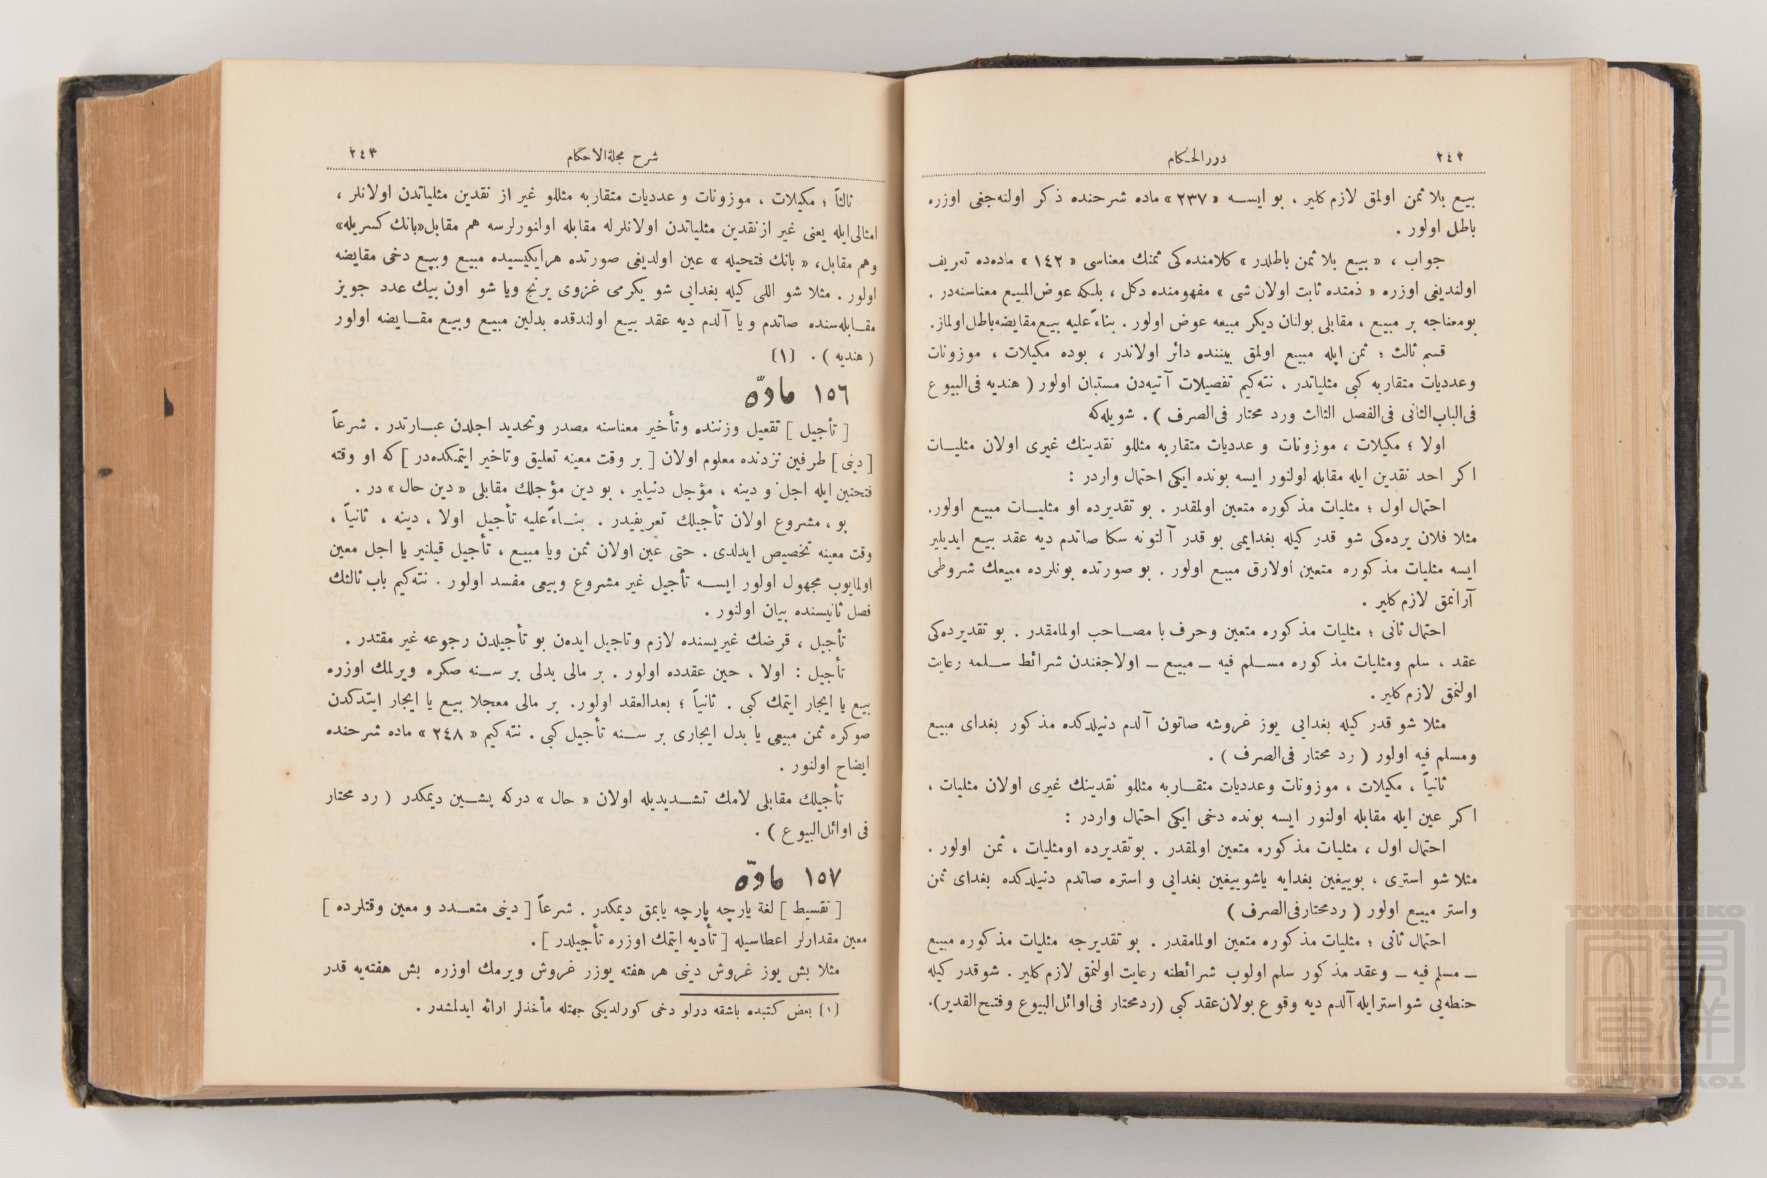 ٢٤٢
دررالحكام
بيع بلا ثمن اولمق لازم كلير . بو ايسه « ٢٣٧ » ماده شرحنده ذكر اولنه‌جغى اوزره
باطل اولور .
جواب ، « بيع بلا ثمن باطلدر » كلامنده‌كى ثمنك معناسى « ١٤٢ » ماده‌ده تعريف
اولنديغى اوزره « ذمتده ثابت اولان شى » مفهومنده دكل ، بلكه عوض‌المبيع معناسنه‌در .
بومعناجه بر مبيع ، مقابلى بولنان ديكر مبيعه عوض اولور . بناءً عليه بيع مقايضه باطل اولماز.
قسم ثالث ؛ ثمن ايله مبيع اولمق بيننده دائر اولاندر ، بوده مكيلات ، موزونات
وعدديات متقاربه كبى مثلياتدر ، نته‌كيم تفصيلات آتيه‌دن مستبان اولور ( هنديه فى‌البيوع
فى‌الباب‌الثانى فى‌الفصل الثالث ورد محتار فى‌الصرف ) . شويله‌كه
اولا ؛ مكيلات ، موزونات و عدديات متقاربه مثللو نقدينك غيرى اولان مثليات
اكر احد نقدين ايله مقابله اولنور ايسه بونده ايكى احتمال واردر :
احتمال اول ؛ مثليات مذكوره متعين اولمقدر . بو تقديرده او مثليات مبيع اولور.
مثلا فلان يرده‌كى شو قدر كيله بغدايمى بو قدر آلتونه سكا صاتدم ديه عقد بيع ايديلير
ايسه مثليات مذكوره متعين اولارق مبيع اولور . بو صورتده بونلرده مبيعك شروطى
آرانمق لازم كلير .
احتمال ثانى ؛ مثليات مذكوره متعين وحرف با مصاحب اولمامقدر . بو تقديرده‌كى
عقد ، سلم ومثليات مذكوره مسلم فيه ـ مبيع ـ اولاجغندن شرائط سلمه رعايت
اولنمق لازم كلير .
مثلا شو قدر كيله بغدايى يوز غروشه صاتون آلدم دنيلدكده مذكور بغداى مبيع
ومسلم فيه اولور ( رد محتار فى‌الصرف ) .
ثانياً ، مكيلات ، موزونات وعدديات متقاربه مثللو نقدينك غيرى اولان مثليات ،
اكر عين ايله مقابله اولنور ايسه بونده دخى ايكى احتمال واردر :
احتمال اول ، مثليات مذكوره متعين اولمقدر . بوتقديرده اومثليات ، ثمن اولور .
مثلا شو استرى ، بوييغين بغدايه ياشوييغين بغدايى و استره صاتدم دنيلدكده بغداى ثمن
واستر مبيع اولور ( ردمحتارفى‌الصرف )
احتمال ثانى ؛ مثليات مذكوره متعين اولمامقدر . بو تقديرجه مثليات مذكوره مبيع
ـ مسلم فيه ـ وعقد مذكور سلم اولوب شرائطنه رعايت اولنمق لازم كلير . شوقدر كيله
حنطه‌يى شواسترايله آلدم ديه وقوع بولان عقد كبى (ردمحتار فى‌اوائل‌البيوع وفتح‌القدير).
شرح مجلةالاحكام
٢٤٣
ثالثاً ؛ مكيلات ، موزونات و عدديات متقاربه مثللو غير از نقدين مثلياتدن اولانلر ،
امثالى‌ايله يعنى غير ازنقدين مثلياتدن اولانلرله مقابله اولنورلرسه هم مقابل«بانك كسريله»
وهم مقابل، « بانك فتحيله » عين اولديغى صورتده هرايكيسيده مبيع وبيع دخى مقايضه
اولور . مثلا شو اللى كيله بغدايى شو يكرمى غزوى يرنج ويا شو اون بيك عدد جويز
مقابله‌سنده صاتدم و يا آلدم ديه عقد بيع اولندقده بدلين مبيع وبيع مقايضه اولور
( هنديه ) . [١]
١٥٦ مادّه
[ تأجيل ] تفعيل وزننده وتأخير معناسنه مصدر وتحديد اجلدن عبارتدر . شرعاً
[ دينى ] طرفين نزدنده معلوم اولان [ بر وقت معينه تعليق وتاخير ايتمكده‌در ] كه او وقته
فتحتين ايله اجل و دينه ، مؤجل دنيلير ، بو دين مؤجلك مقابلى « دين حال » در .
بو ، مشروع اولان تأجيلك تعريفيدر . بناءً عليه تأجيل اولا ، دينه ، ثانياً ،
وقت معينه تخصيص ايدلدى . حتى عين اولان ثمن ويا مبيع ، تأجيل قيلنير يا اجل معين
اولمايوب مجهول اولور ايسه تأجيل غير مشروع وبيعى مفسد اولور . نته‌كيم باب ثالثك
فصل ثانيسنده بيان اولنور .
تأجيل ، قرضك غيريسنده لازم وتاجيل ايده‌ن بو تأجيلدن رجوعه غير مقتدر .
تأجيل : اولا . حين عقدده اولور . بر مالى بدلى بر سنه صكره ويرلمك اوزره
بيع يا ايجار ايتمك كبى . ثانياً ؛ بعدالعقد اولور. بر مالى معجلا بيع يا ايجار ايتدكدن
صوكره ثمن مبيعى يا بدل ايجارى بر سنه تأجيل كبى . نته‌كيم « ٢٤٨ » ماده شرحنده
ايضاح اولنور .
تأجيلك مقابلى لامك تشديديله اولان « حال » دركه پشين ديمكدر ( رد محتار
فى اوائل‌البيوع ) .
١٥٧ مادّه
[ تقسيط ] لغة پارچه پارچه يابمق ديمكدر . شرعاً [ دينى متعدد و معين وقتلرده ]
معين مقدارلر اعطاسيله [ تأديه ايتمك اوزره تأجيلدر ] .
مثلا بش يوز غروش دينى هر هفته يوزر غروش ويرمك اوزره بش هفته‌يه قدر
[١] بعض كتبده باشقه درلو دخى كورلديكى جهتله مأخذلر ارائه ايدلمشدر .
TOYO BUNKO
東洋文庫
TOYO BUNKO